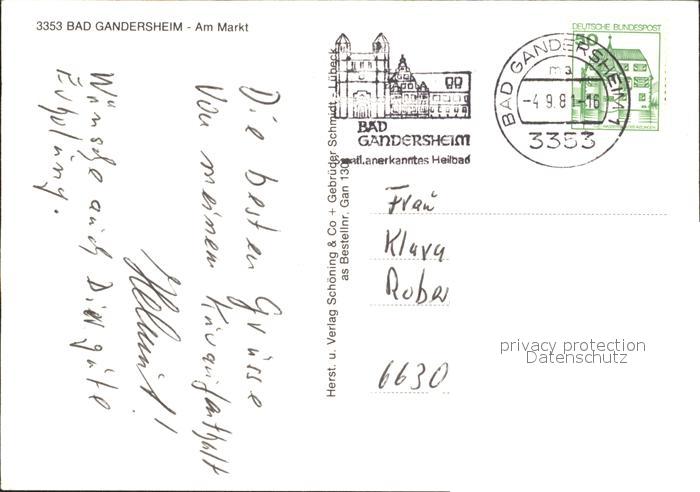 3353 BAD GANDERSHEIM - Am Markt
Die besten Grüsse
Von meinem Kuraufenthalt
Helmut!
Wünsche auch Dir gute
Erholung.
Herst. u. Verlag Schöning & Co + Gebrüder Schmidt - Lübeck
as Bestellnr. Gan 130
BAD
GANDERSHEIM
staatl.anerkanntes Heilbad
DEUTSCHE BUNDESPOST
50
BAD GANDERSHEIM 1
ma
-4.9.81-16
3353
Frau
Klara
Rober
6630
privacy protection
Datenschutz